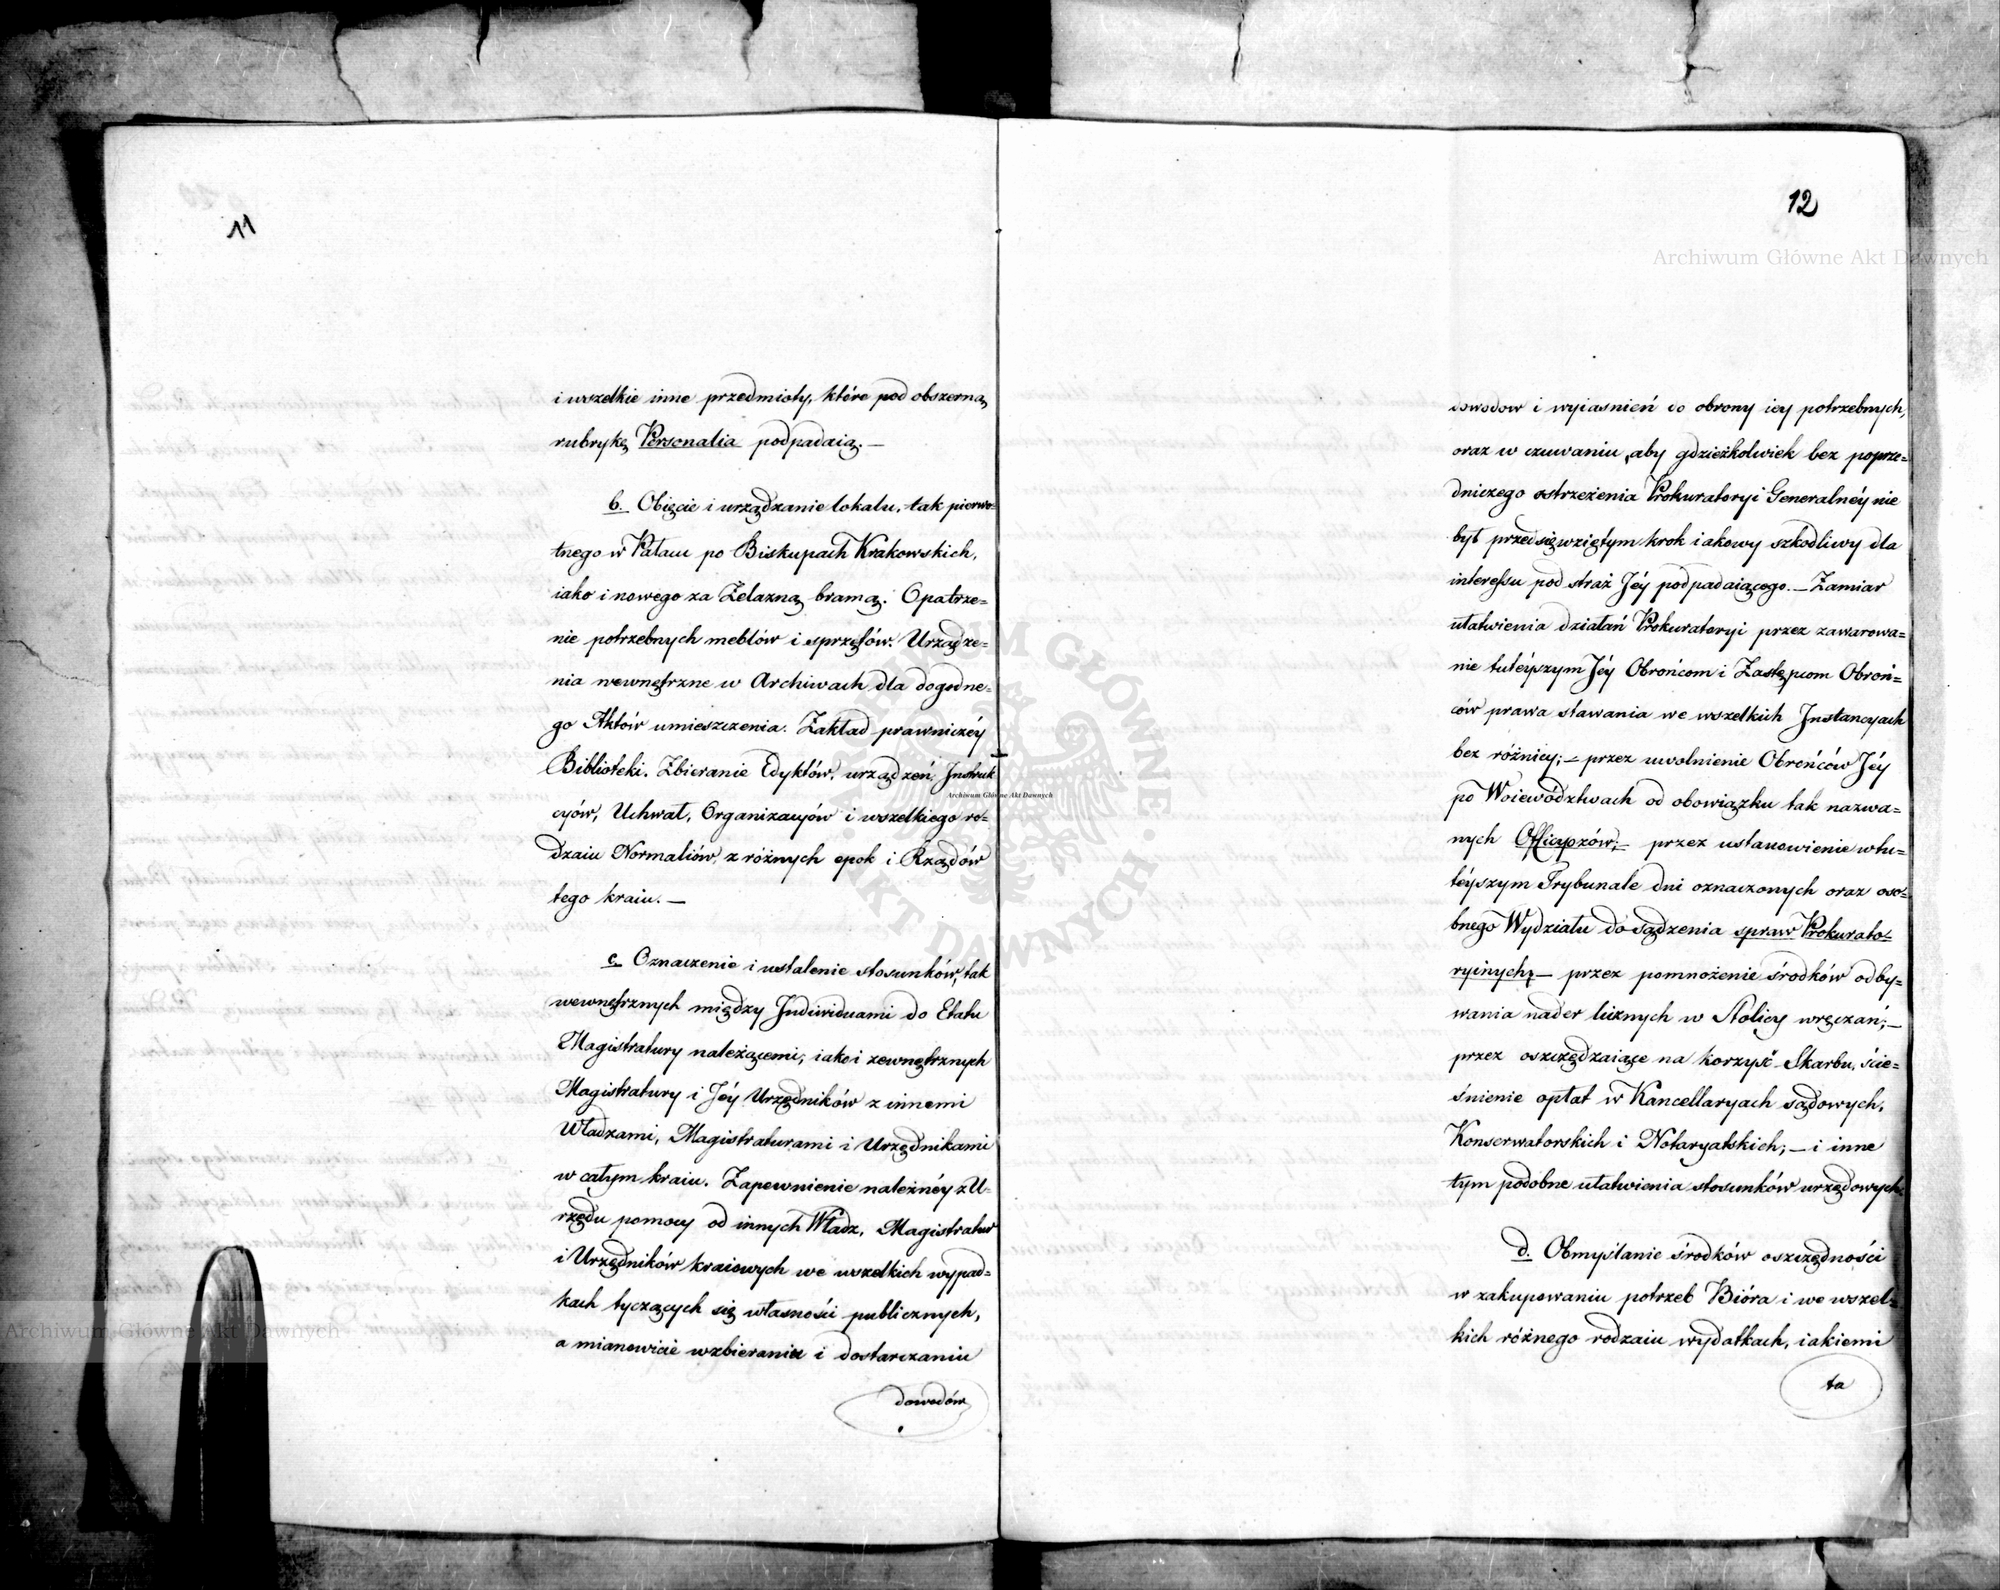 11
i wszelkie inne przedmioty, które pod obszerną
rubrykę Personalia podpadaią. —
b. Obięcie i urządzanie lokalu, tak pierwo-
tnego w Pałacu po Biskupach Krakowskich,
iako i nowego za Żelazną bramą. Opatrze=
nie potrzebnych meblów i sprzętów. Urządze=
nia wewnętrzne w Archiwach dla dogodne-
go Aktów umieszczenia. Zakład prawniczéy
Biblioteki. Zbieranie Edyktów, urządzeń, Instruk
cyów, Uchwał, Organizacyów i wszelkiego ro-
dzaiu Normaliów, z różnych epok i Rządów
tego kraiu. —
c. Oznaczenie i ustalenie stosunków, tak
wewnętrznych między Indiwiduami do Etatu
Magistratury należącemi, iako i zewnętrznych
Magistratury i Jéy Urzędników z innemi
Władzami, Magistraturami i Urzędnikami
w całym kraiu. Zapewnienie należnéy z U-
rzędu pomocy od innych Władz, Magistratur
i Urzędników kraiowych we wszelkich wypad=
kach tyczących się własności publicznych,
a mianowicie wzbieraniu i dostarczaniu
dowodów
12
dowodow i wyiasnień do obrony iey potrzebnych,
oraz w czuwaniu, aby gdzieżkolwiek bez poprze=
dniczego ostrzeżenia Prokuratoryi Generalnéy nie
był przedsięwziętym krok iakowy szkodliwy dla
interessu pod straż Jéy podpadaiącego. — Zamiar
ułatwienia działań Prokuratoryi przez zawarowa=
nie tutéyszym Jéy Obrońcom i Zastępcom Obroń=
ców prawa stawania we wszelkich Instancyach
bez różnicy; — przez uwolnienie Obrońców Jéy
po Woiewództwach od obowiązku tak nazwa=
nych Officyozów; — przez ustanowienie w tu=
téyszym Trybunale dni oznaczonych oraz oso=
bnego Wydziału do sądzenia spraw Prokurato=
ryinych; — przez pomnożenie środków odby=
wania nader licznych w Stolicy wręczań; —
przez oszczędzaiące na korzyść Skarbu, ście=
śnienie opłat w Kancellaryach sądowych,
Konserwatorskich i Notaryatskich; — i inne
tym podobne ułatwienia stosunków urzędowych.
d. Obmyślanie środków oszczędności
w zakupowaniu potrzeb Bióra i we wszel=
kich różnego rodzaiu wydatkach, iakiemi
ta
Archiwum Główne Akt Dawnych
Archiwum Główne Akt Dawnych
Archiwum Główne Akt Dawnych
ARCHIWUM GŁÓWNE
AKT DAWNYCH